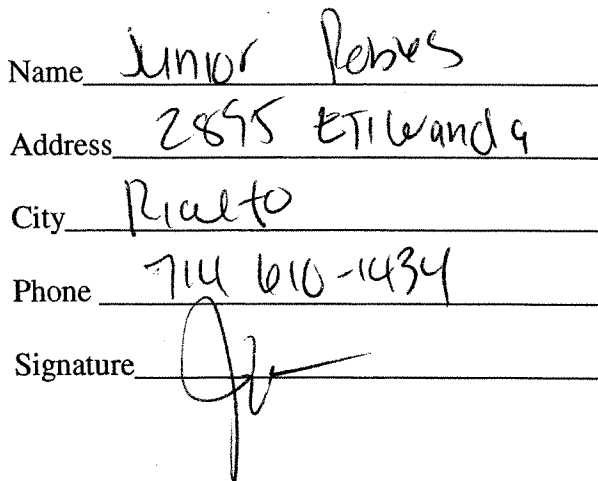 Name Junior Robles
Address 2895 ETIwanda
City Rialto
Phone 714 610-1434
Signature